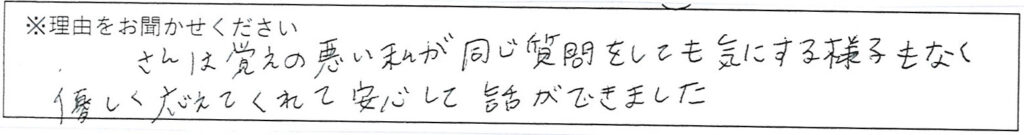 ※理由をお聞かせください
さんは覚えの悪い私が同じ質問をしても気にする様子もなく
優しく応えてくれて安心して話ができました